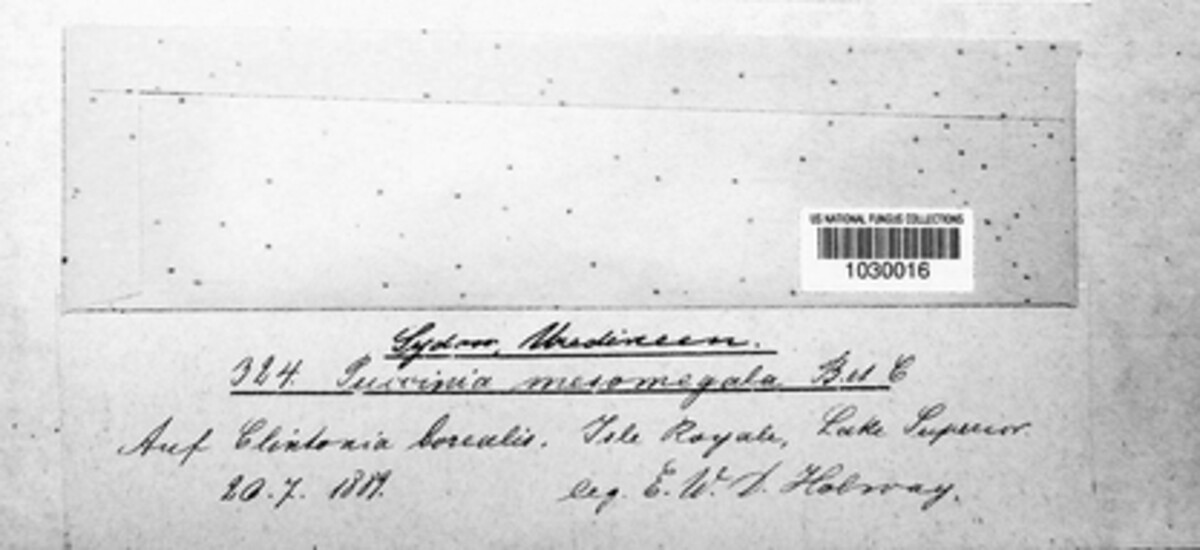 US NATIONAL FUNGUS COLLECTIONS
1030016
Sydow, Uredineen.
324. Puccinia mesomegala B. et C
Auf Clintonia borealis. Isle Royale, Lake Superior.
20.7. 1889. leg. E. W. D. Holway.